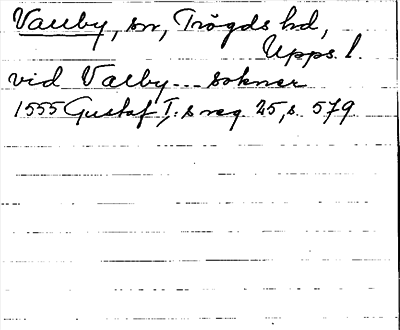 Vallby, sn, Trögds hd,
Upps. l.
vid Valby -- soknar
1555 Gustaf I:s reg 25, s. 579